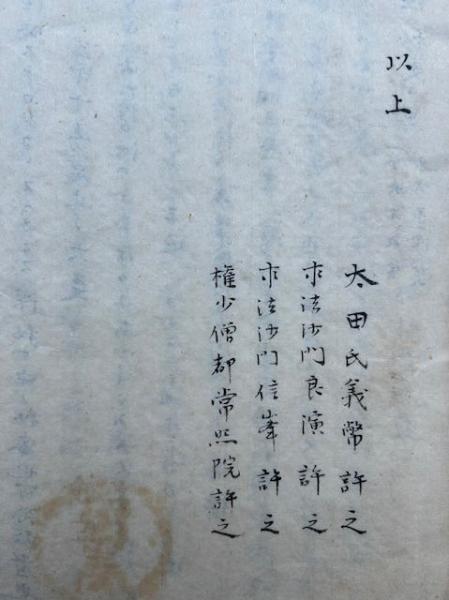 以上
太田氏義幣許之
求法沙門良演許之
求法沙門信峯許之
権少僧都常照院許之